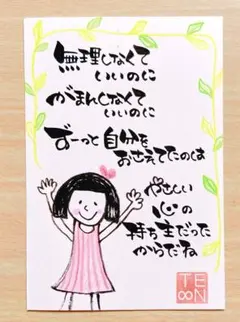 無理しなくて
いいのに
がまんしなくて
いいのに
ずーっと自分を
おさえてたのは
やさしい
心の
持ち主だった
からだね
TE
∞N